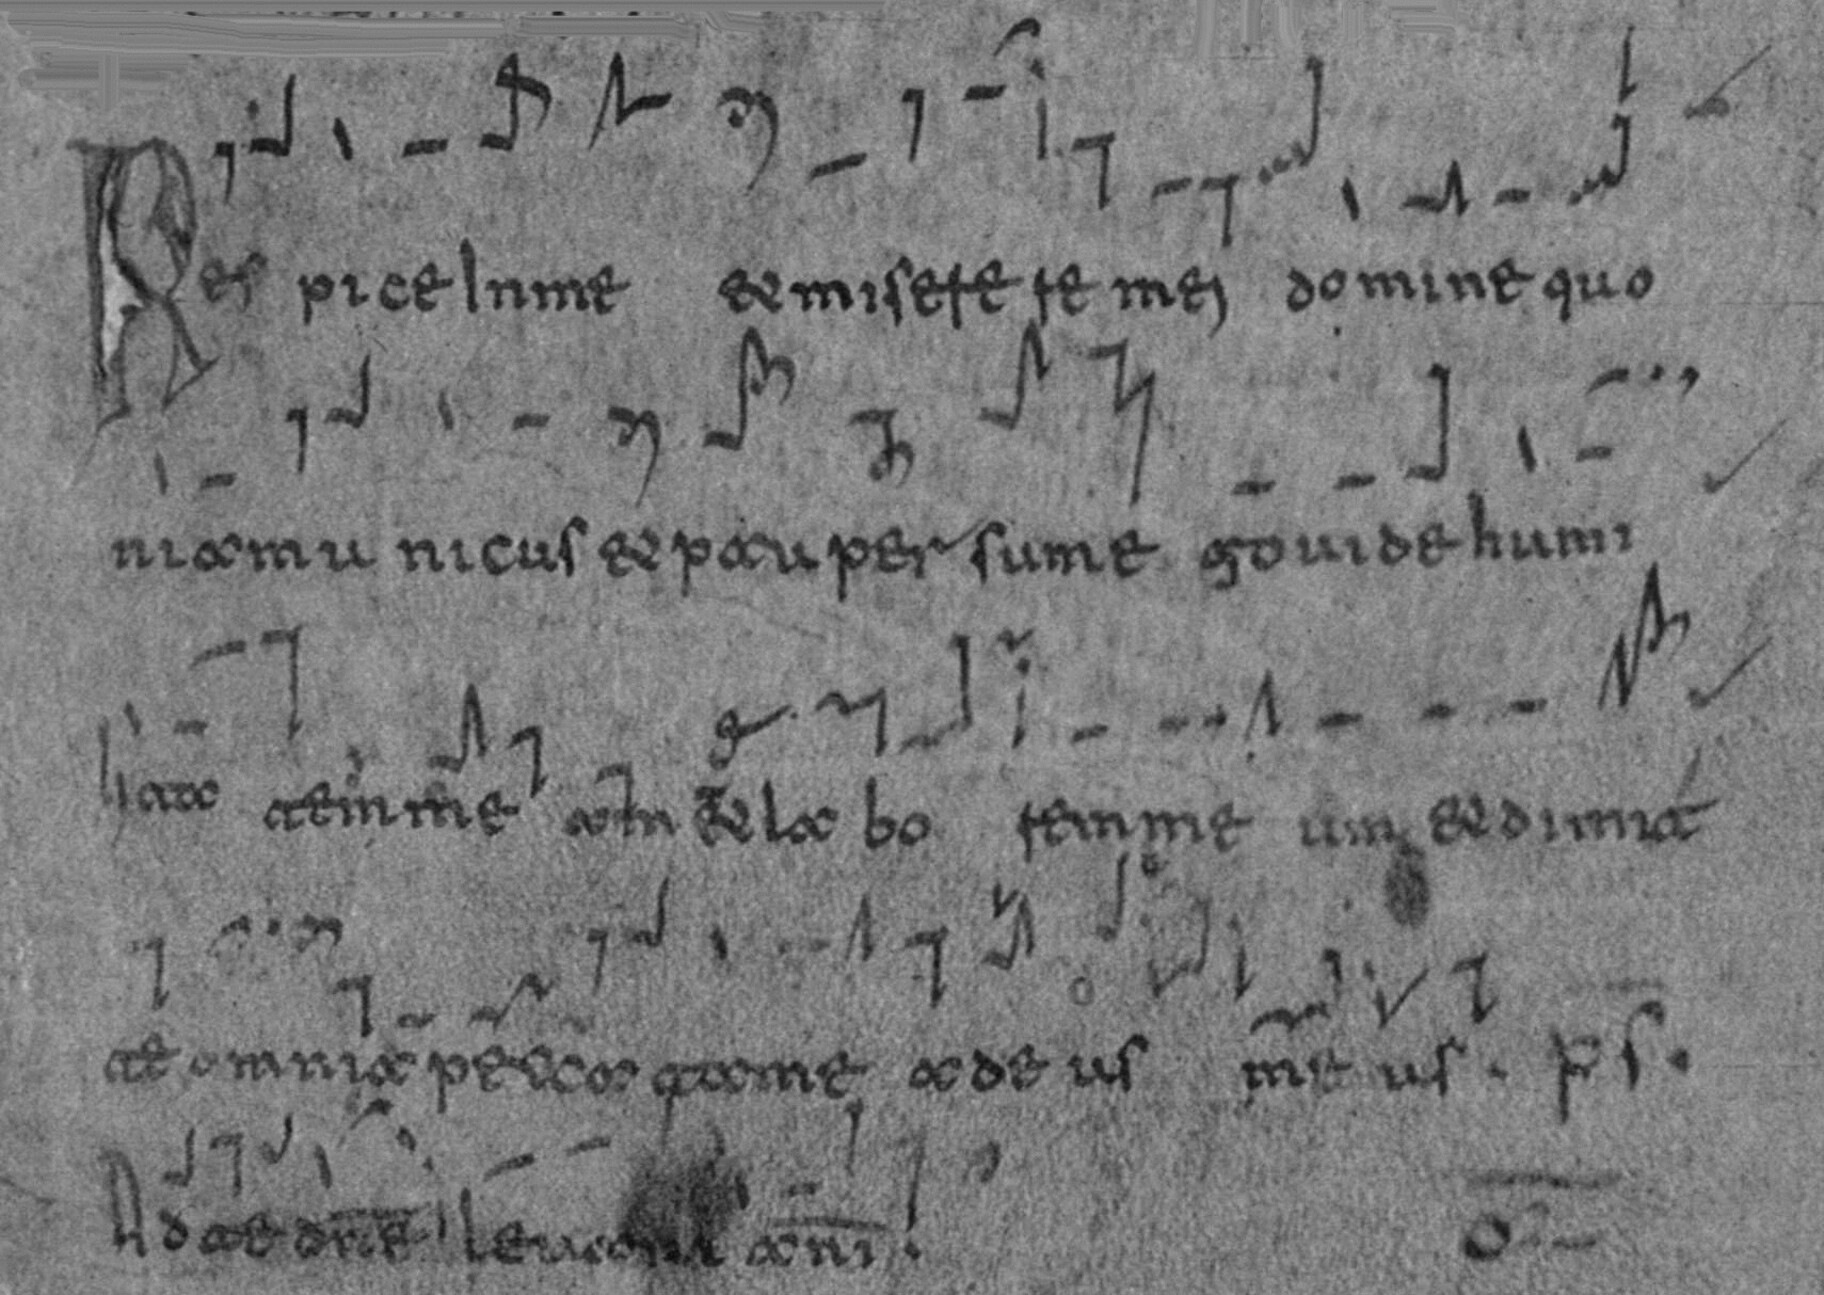 Res pice In me et misere re mei domine quo
niam u nicus et pauper sum e go uide humi
lita tem me am et la bo rem me um et dimit
te omnia peccata me a de us me us . ps.
Ad te dne leuaui ani .